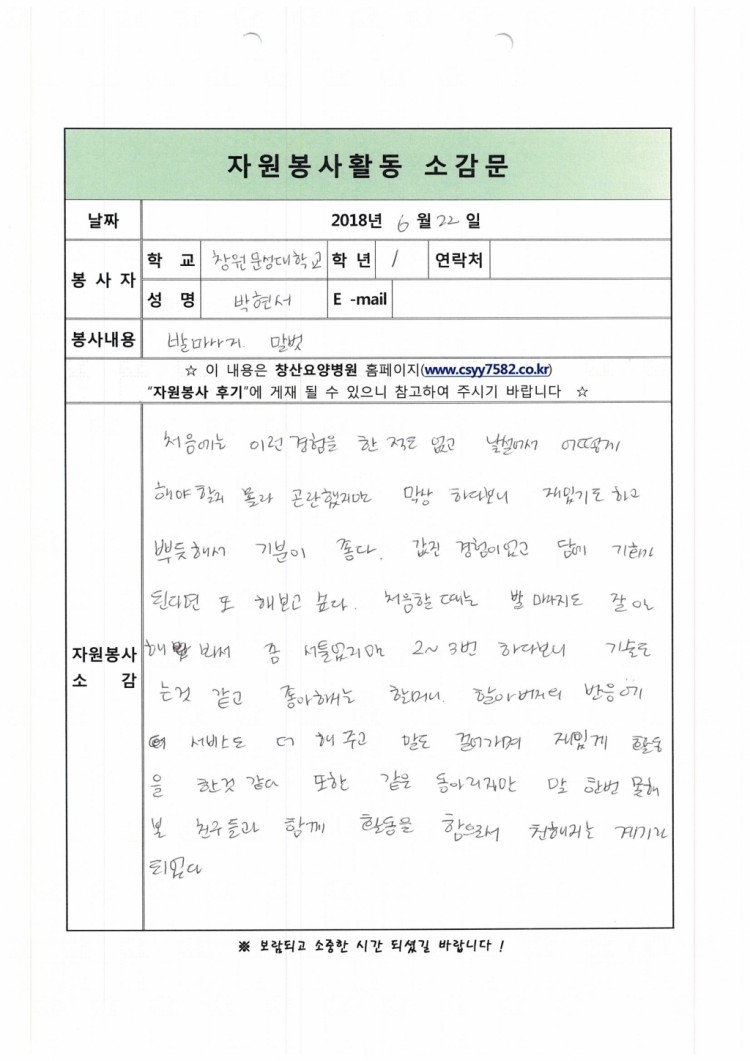 자원봉사활동 소감문
날짜 2018년 6월 22일
봉사자 학교 창원문성대학교 학년 1 연락처
성명 박현서 E-mail
봉사내용 발마사지. 말벗
☆ 이 내용은 창산요양병원 홈페이지(www.csyy7582.co.kr)
"자원봉사 후기"에 게재 될 수 있으니 참고하여 주시기 바랍니다 ☆
처음에는 이런 경험을 한 적도 없고 낯설어서 어떻게
해야 할지 몰라 곤란했지만 막상 하다보니 재밌기도 하고
뿌듯해서 기분이 좋다. 값진 경험이었고 담에 기회가
된다면 또 해보고 싶다. 처음할 때는 발 마사지도 잘 안
해 봐서 좀 서툴었지만 2~3번 하다보니 기술도
자원봉사 소감
는것 같고 좋아해주는 할머니. 할아버지의 반응에
서비스도 더 해 주고 말도 걸어가며 재밌게 활동
을 한것 같다 또한 같은 동아리지만 말 한번 못해
본 친구들과 함께 활동을 함으로서 친해지는 계기가
되었다
※ 보람되고 소중한 시간 되셨길 바랍니다 !